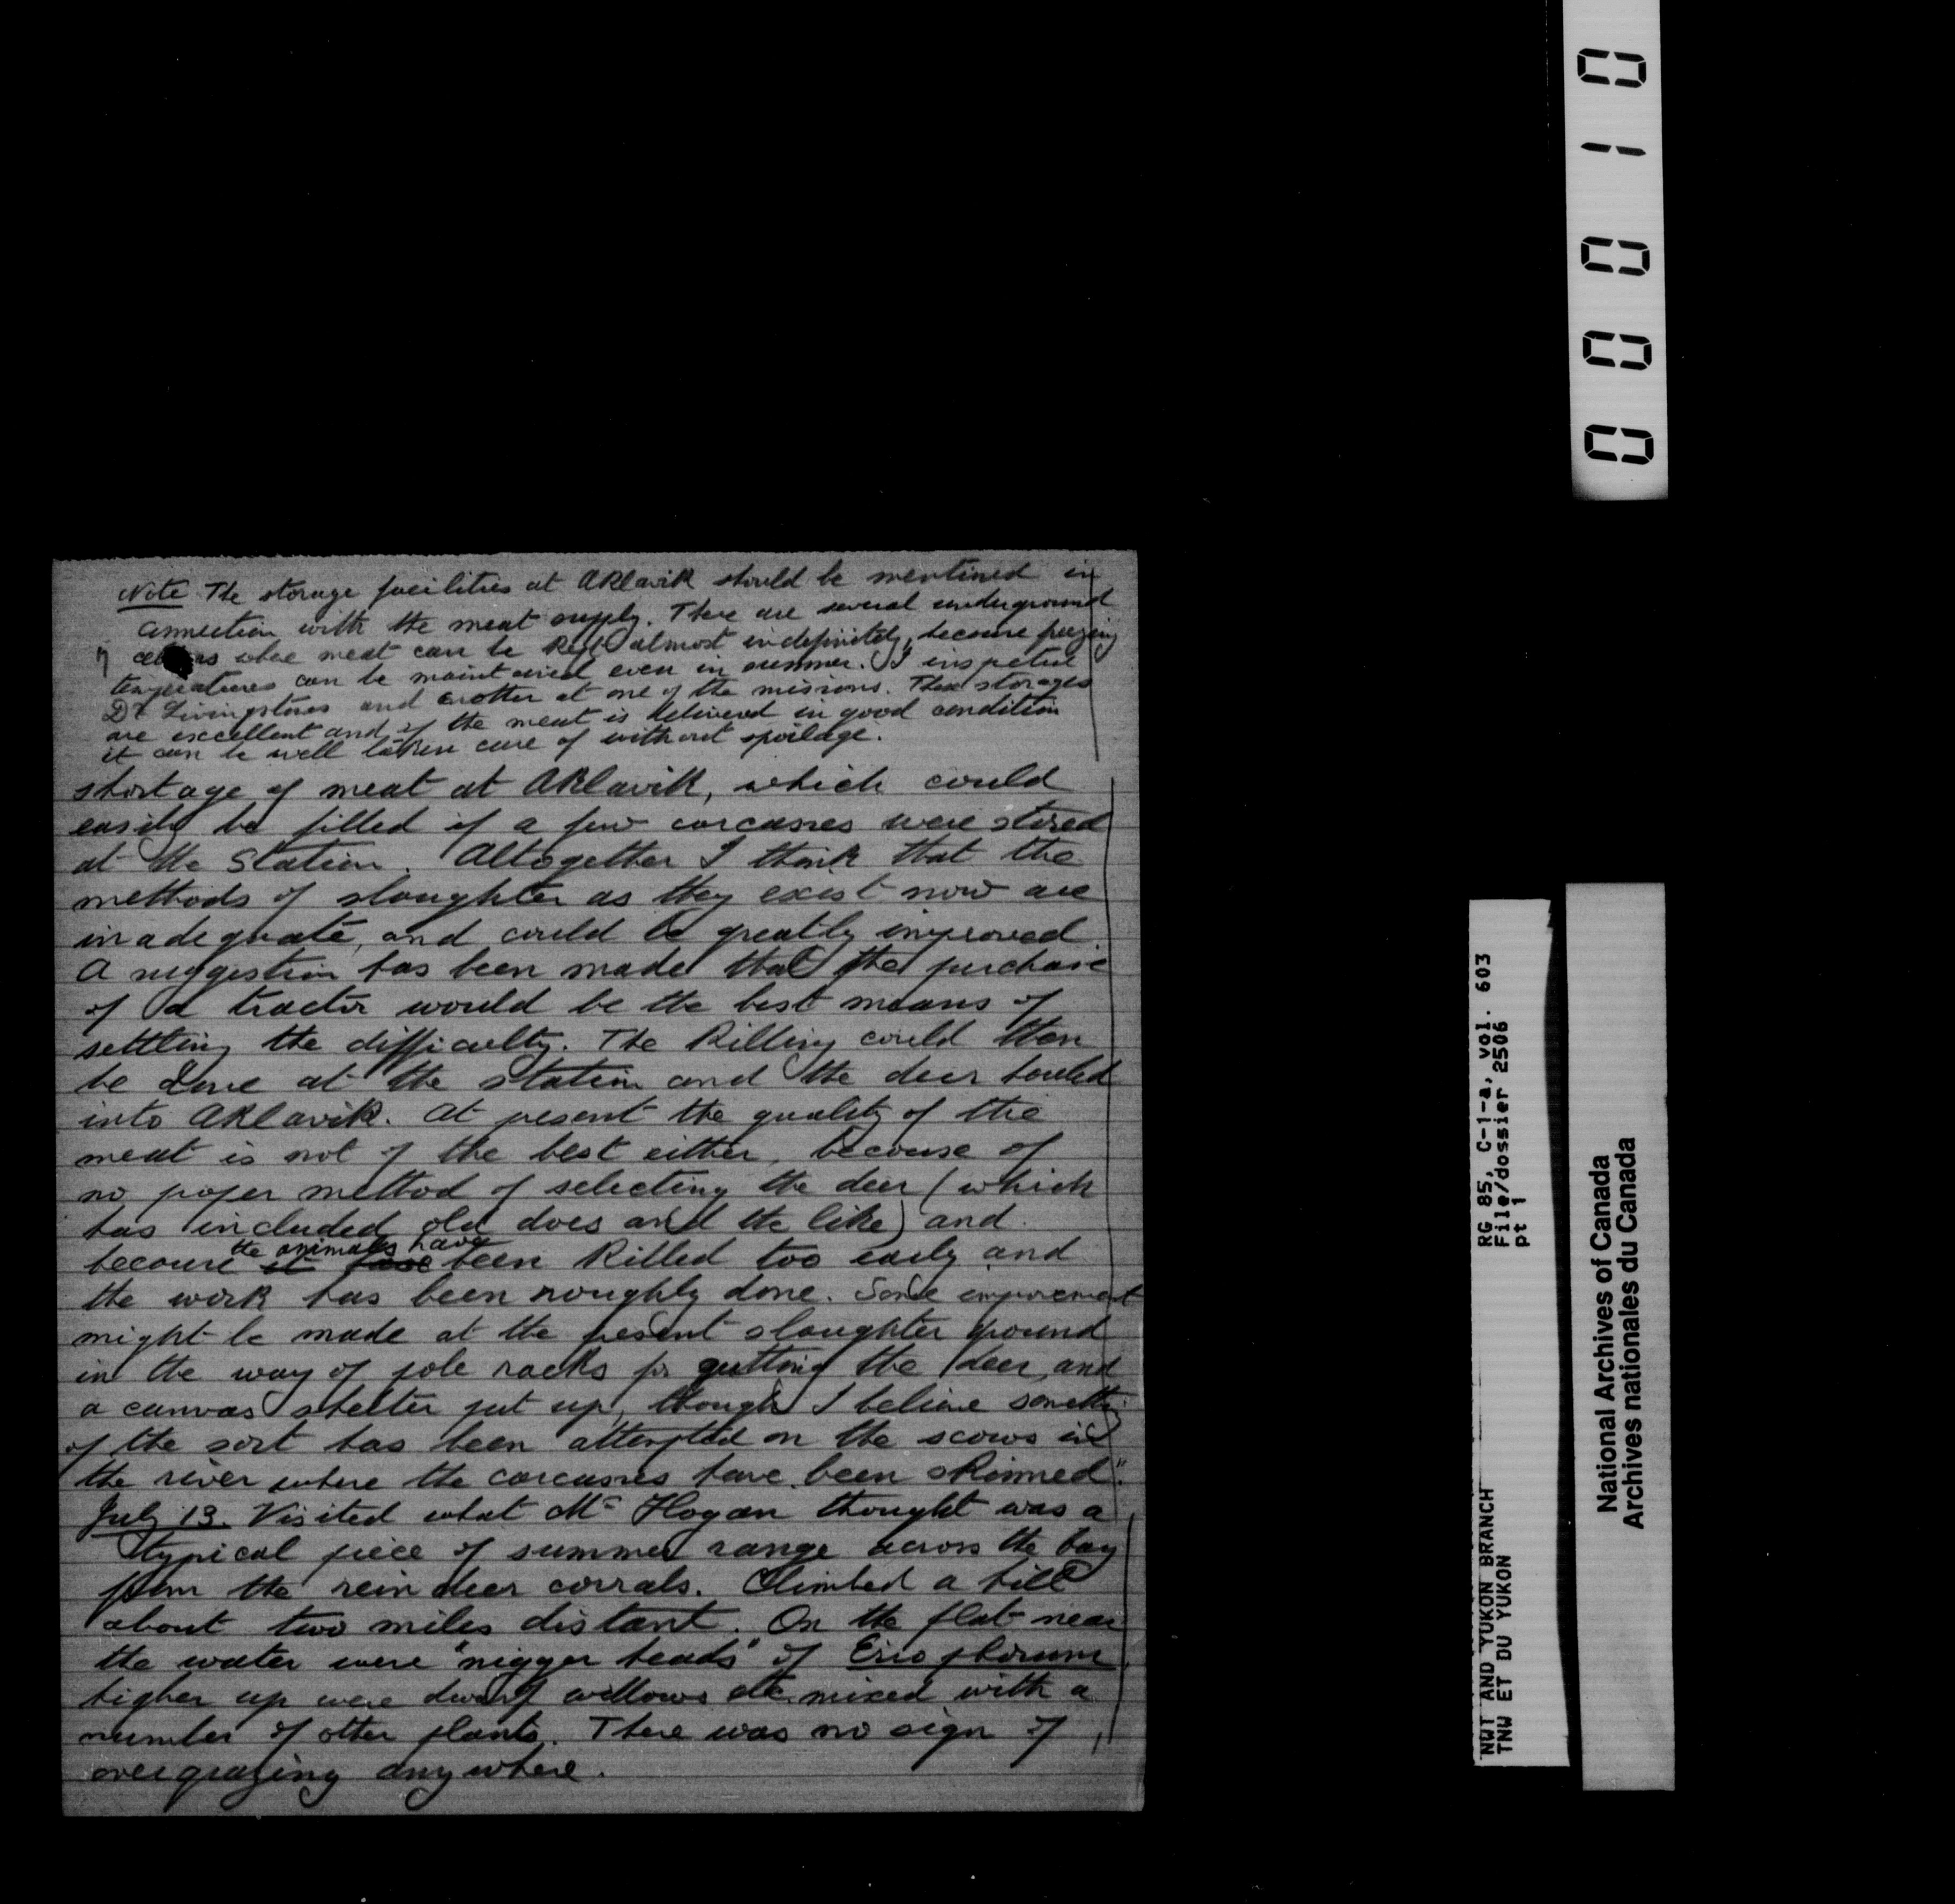 Note The storage facilities at Aklavik should be mentioned in
connection with the meat supply. There are several underground
cellars where meat can be kept almost indefinitely, because freezing
temperatures can be maintained even in summer. I inspected
Dr Livingstones and another at one of the missions. These storages
are excellent and if the meat is delivered in good condition
it can be well taken care of without spoilage.
shortage of meat at Aklavik, which could
easily be filled if a few carcasses were stored
at the Station. Altogether I think that the
methods of slaughter as they exist now are
inadequate, and could be greatly improved.
A suggestion has been made that the purchase
of a tractor would be the best means of
settling the difficulty. The killing could then
be done at the station and the deer hauled
into Aklavik. At present the quality of the
meat is not of the best either, because of
no proper method of selecting the deer (which
has included old does and the like) and
because it has the animals have been killed too early and
the work has been roughly done. Some improvement
might be made at the present slaughter ground
in the way of pole racks for gutting the deer, and
a canvas shelter put up, though I believe something
of the sort has been attempted on the scows in
the river where the carcasses have been skinned".
July 13. Visited what Mr Hogan thought was a
typical piece of summer range across the bay
from the reindeer corrals. Climbed a hill
about two miles distant. On the flat near
the water were "nigger heads" of Eriophorum,
higher up were dwarf willows etc. mixed with a
number of other plants. There was no sign of
overgrazing anywhere.
00010
RG 85, C-1-a, vol. 603
File/dossier 2506
pt 1
NWT AND YUKON BRANCH
TNW ET DU YUKON
National Archives of Canada
Archives nationales du Canada